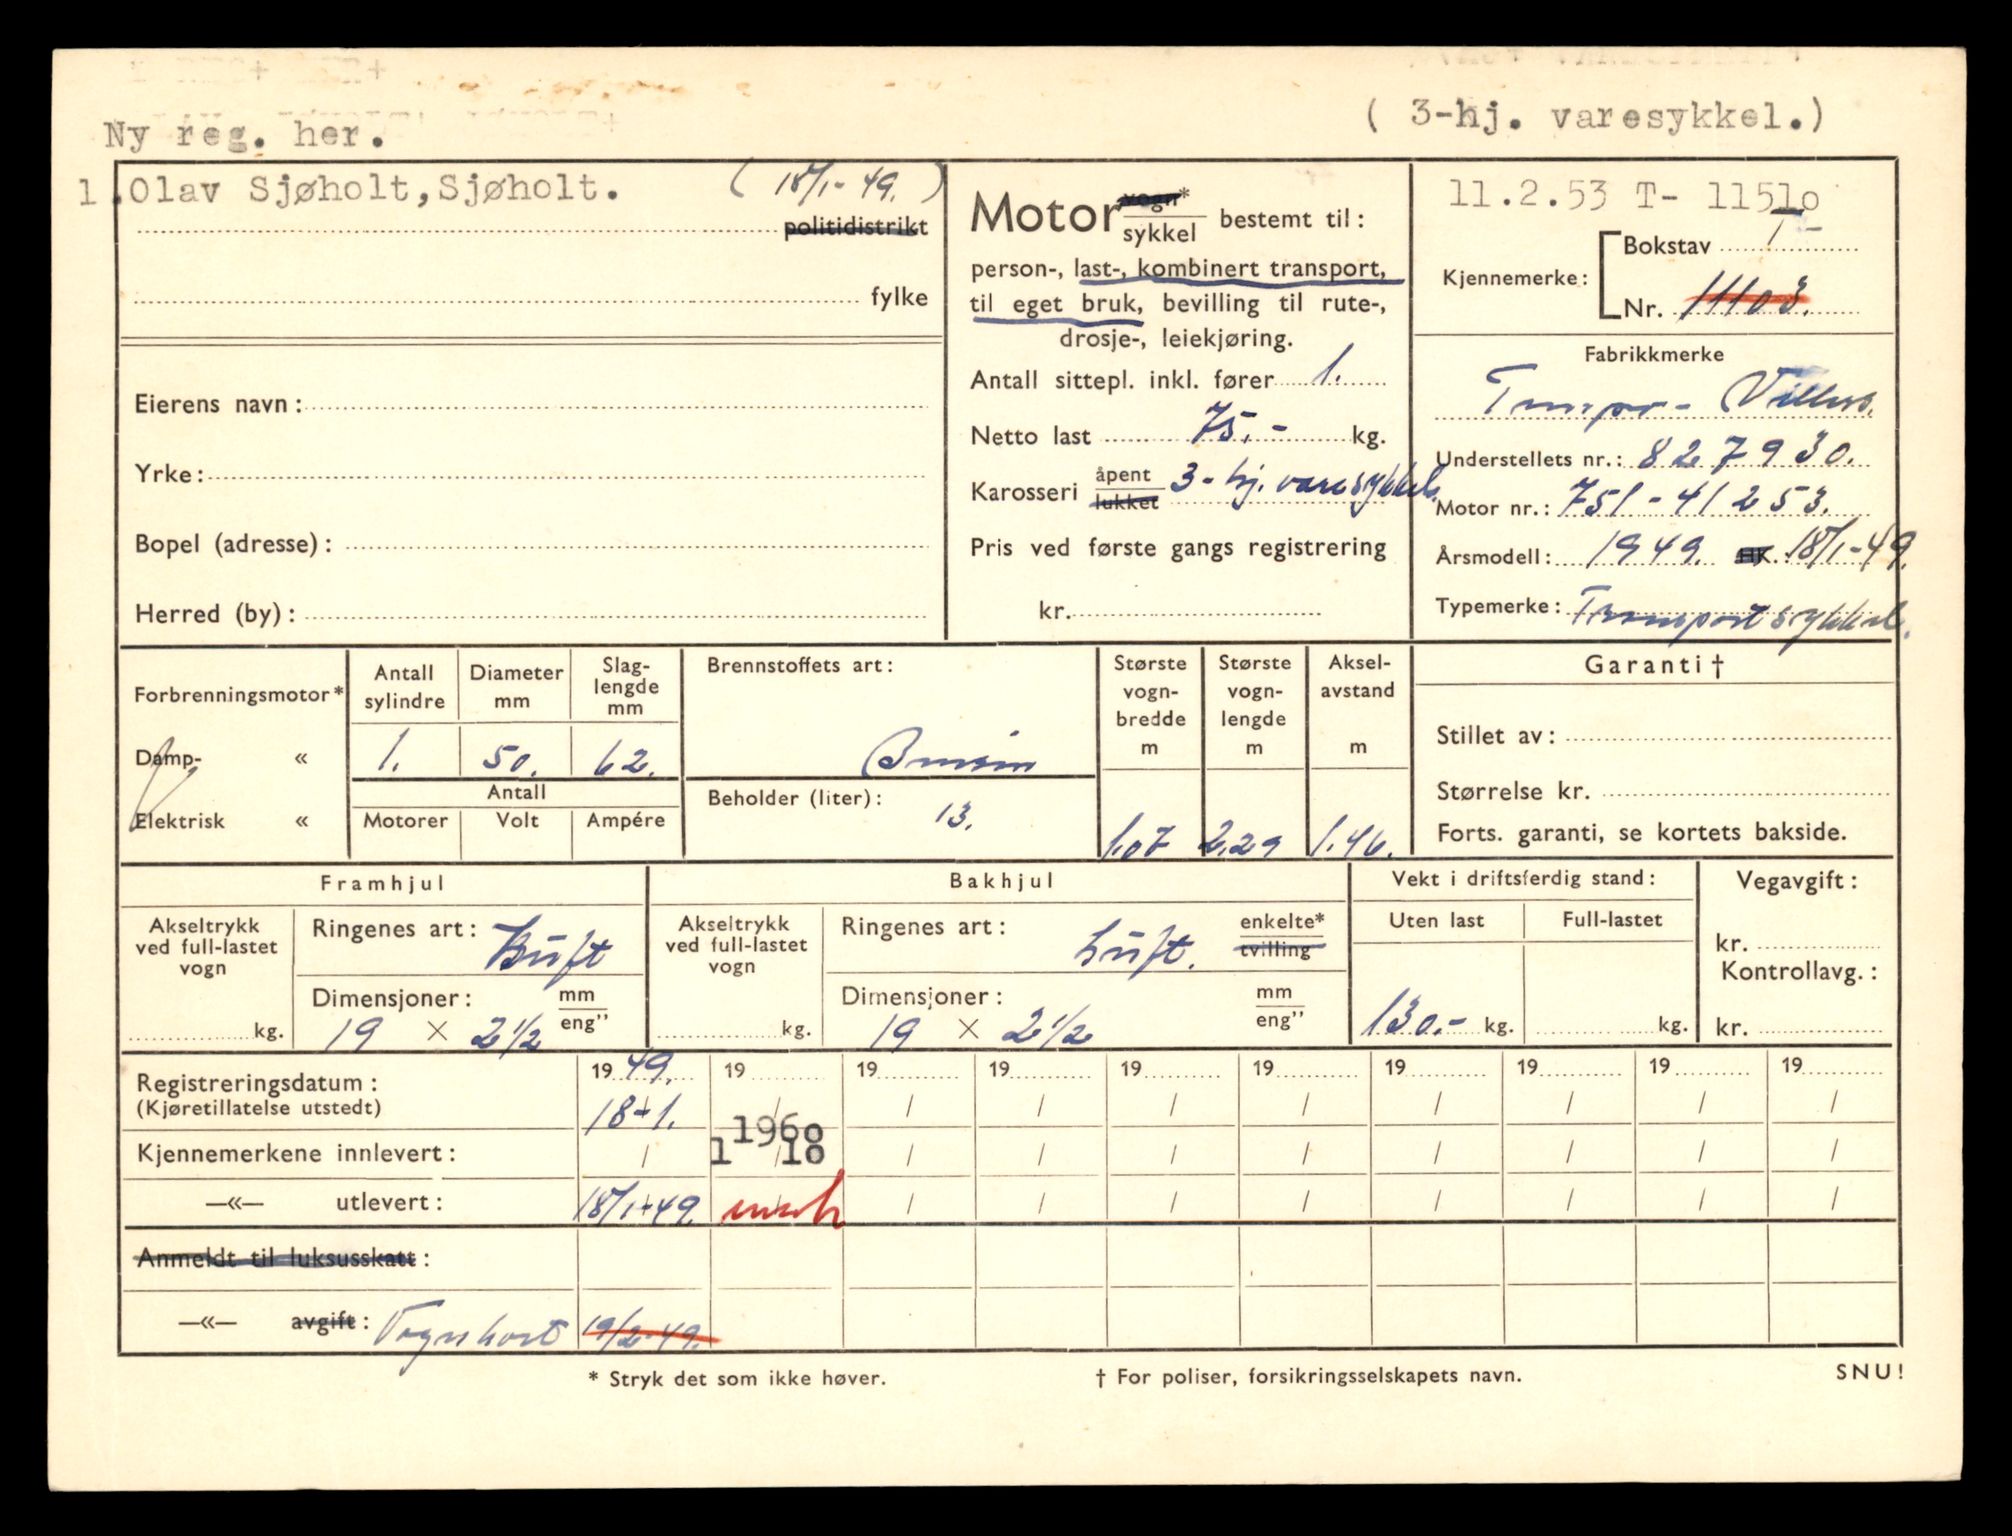 Ny reg. her.
( 3-hj. varesykkel.)
1.Olav Sjøholt,Sjøholt. ( 18/1- 49. )
politidistrikt
fylke
Eierens navn:
Yrke:
Bopel (adresse):
Herred (by):
Motor vogn* sykkel bestemt til:
person-, last-, kombinert transport,
til eget bruk, bevilling til rute-,
drosje-, leiekjøring.
Antall sittepl. inkl. fører 1.
Netto last 75.- kg.
Karosseri åpent lukket 3-hj. varesykkel.
Pris ved første gangs registrering
kr.
11.2.53 T- 11510
Kjennemerke: Bokstav T-
Nr. 11103.
Fabrikkmerke
Tempo- Villiers.
Understellets nr.: 827930.
Motor nr.: 751-41253.
Årsmodell: 1949. HK. 18/1-49.
Typemerke: Transportsykkel.
Forbrenningsmotor*
Damp- «
Elektrisk «
Antall sylindre
1.
Diameter mm
50.
Slag-lengde mm
62.
Antall
Motorer Volt Ampére
Brennstoffets art:
Bensin
Beholder (liter):
13.
Største vogn-bredde m
1.07
Største vogn-lengde m
2.29
Aksel-avstand m
1.46.
Garanti †
Stillet av:
Størrelse kr.
Forts. garanti, se kortets bakside.
Framhjul
Akseltrykk ved full-lastet vogn
kg.
Ringenes art: Luft
Dimensjoner: mm eng”
19 × 2 1/2
Bakhjul
Akseltrykk ved full-lastet vogn
kg.
Ringenes art: Luft. enkelte* tvilling
Dimensjoner: mm eng”
19 × 2 1/2
Vekt i driftsferdig stand:
Uten last Full-lastet
130.- kg. kg.
Vegavgift:
kr.
Kontrollavg.:
kr.
Registreringsdatum: 19 49. 19 19 19 19 19 19 19 19 19
(Kjøretillatelse utstedt) 18-1. / / / / / / / / /
1960
Kjennemerkene innlevert: / 1 10 / / / / / / / /
—«— utlevert: 18/1-49. / / / / / / / /
Anmeldt til luksusskatt:
—«— avgift: Vognkort 19/2-49.
* Stryk det som ikke høver.
† For poliser, forsikringsselskapets navn.
SNU!